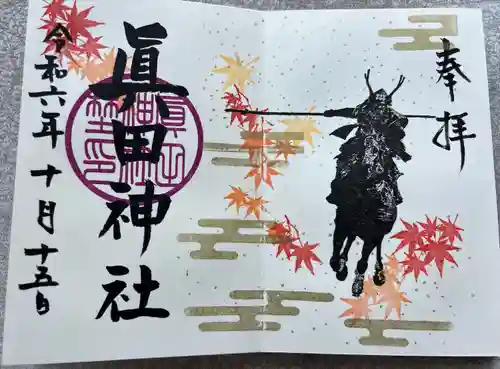 奉拝
眞田神社
令和六年十月十五日